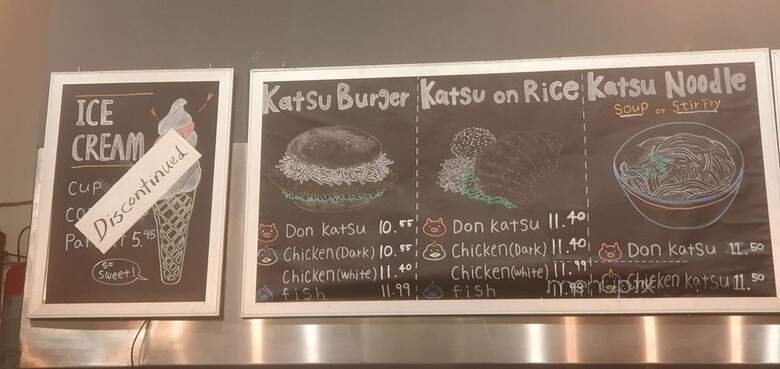 ICE
CREAM
Discontinued
CUP
5.95
SO
Sweet!
Katsu Burger
Don katsu 10.55
Chicken(Dark) 10.55
Chicken(white) 11.40
fish 11.99
Katsu on Rice
Don katsu 11.40
Chicken(Dark) 11.40
Chicken(white) 11.99
fish 11.99
Katsu Noodle
Soup or Stir Fry
Don katsu 11.50
Chicken katsu 11.50
menupix